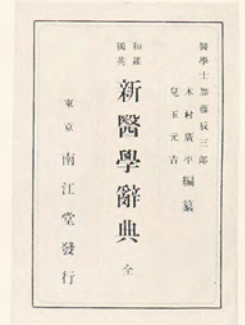 醫學士 加藤辰三郎
木村廣平
兒玉元吉
編纂
和羅
獨英
新醫學辭典 全
東京 南江堂發行